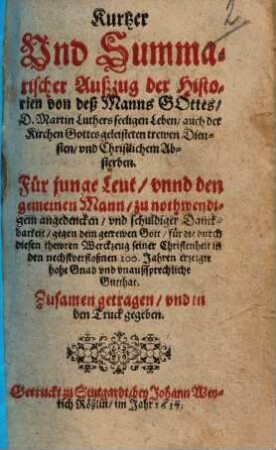 2
Kurtzer
Vnd Summa-
rischer Außzug der Histo-
rien von deß Manns GOttes/
D. Martin Luthers seeligen Leben/ auch der
Kirchen Gottes geleisteten trewen Dien-
sten/ vnd Christlichem Ab-
sterben.
Für junge Leut/ vnnd den
gemeinen Mann/ zu nothwendi-
gem angedencken/ vnd schuldiger Danck-
barkeit/ gegen dem getrewen Gott/ für die durch
diesen thewren Werckzeug seiner Christenheit in
den nechstverfloßnen 100. Jahren erzeigte
hohe Gnad vnd vnaußsprechliche
Gutthat.
Zusamen getragen/ vnd in
den Truck gegeben.
Getruckt zu Stutgardt/ bey Johann Wey-
rich Rößlin/ im Jahr 1617.